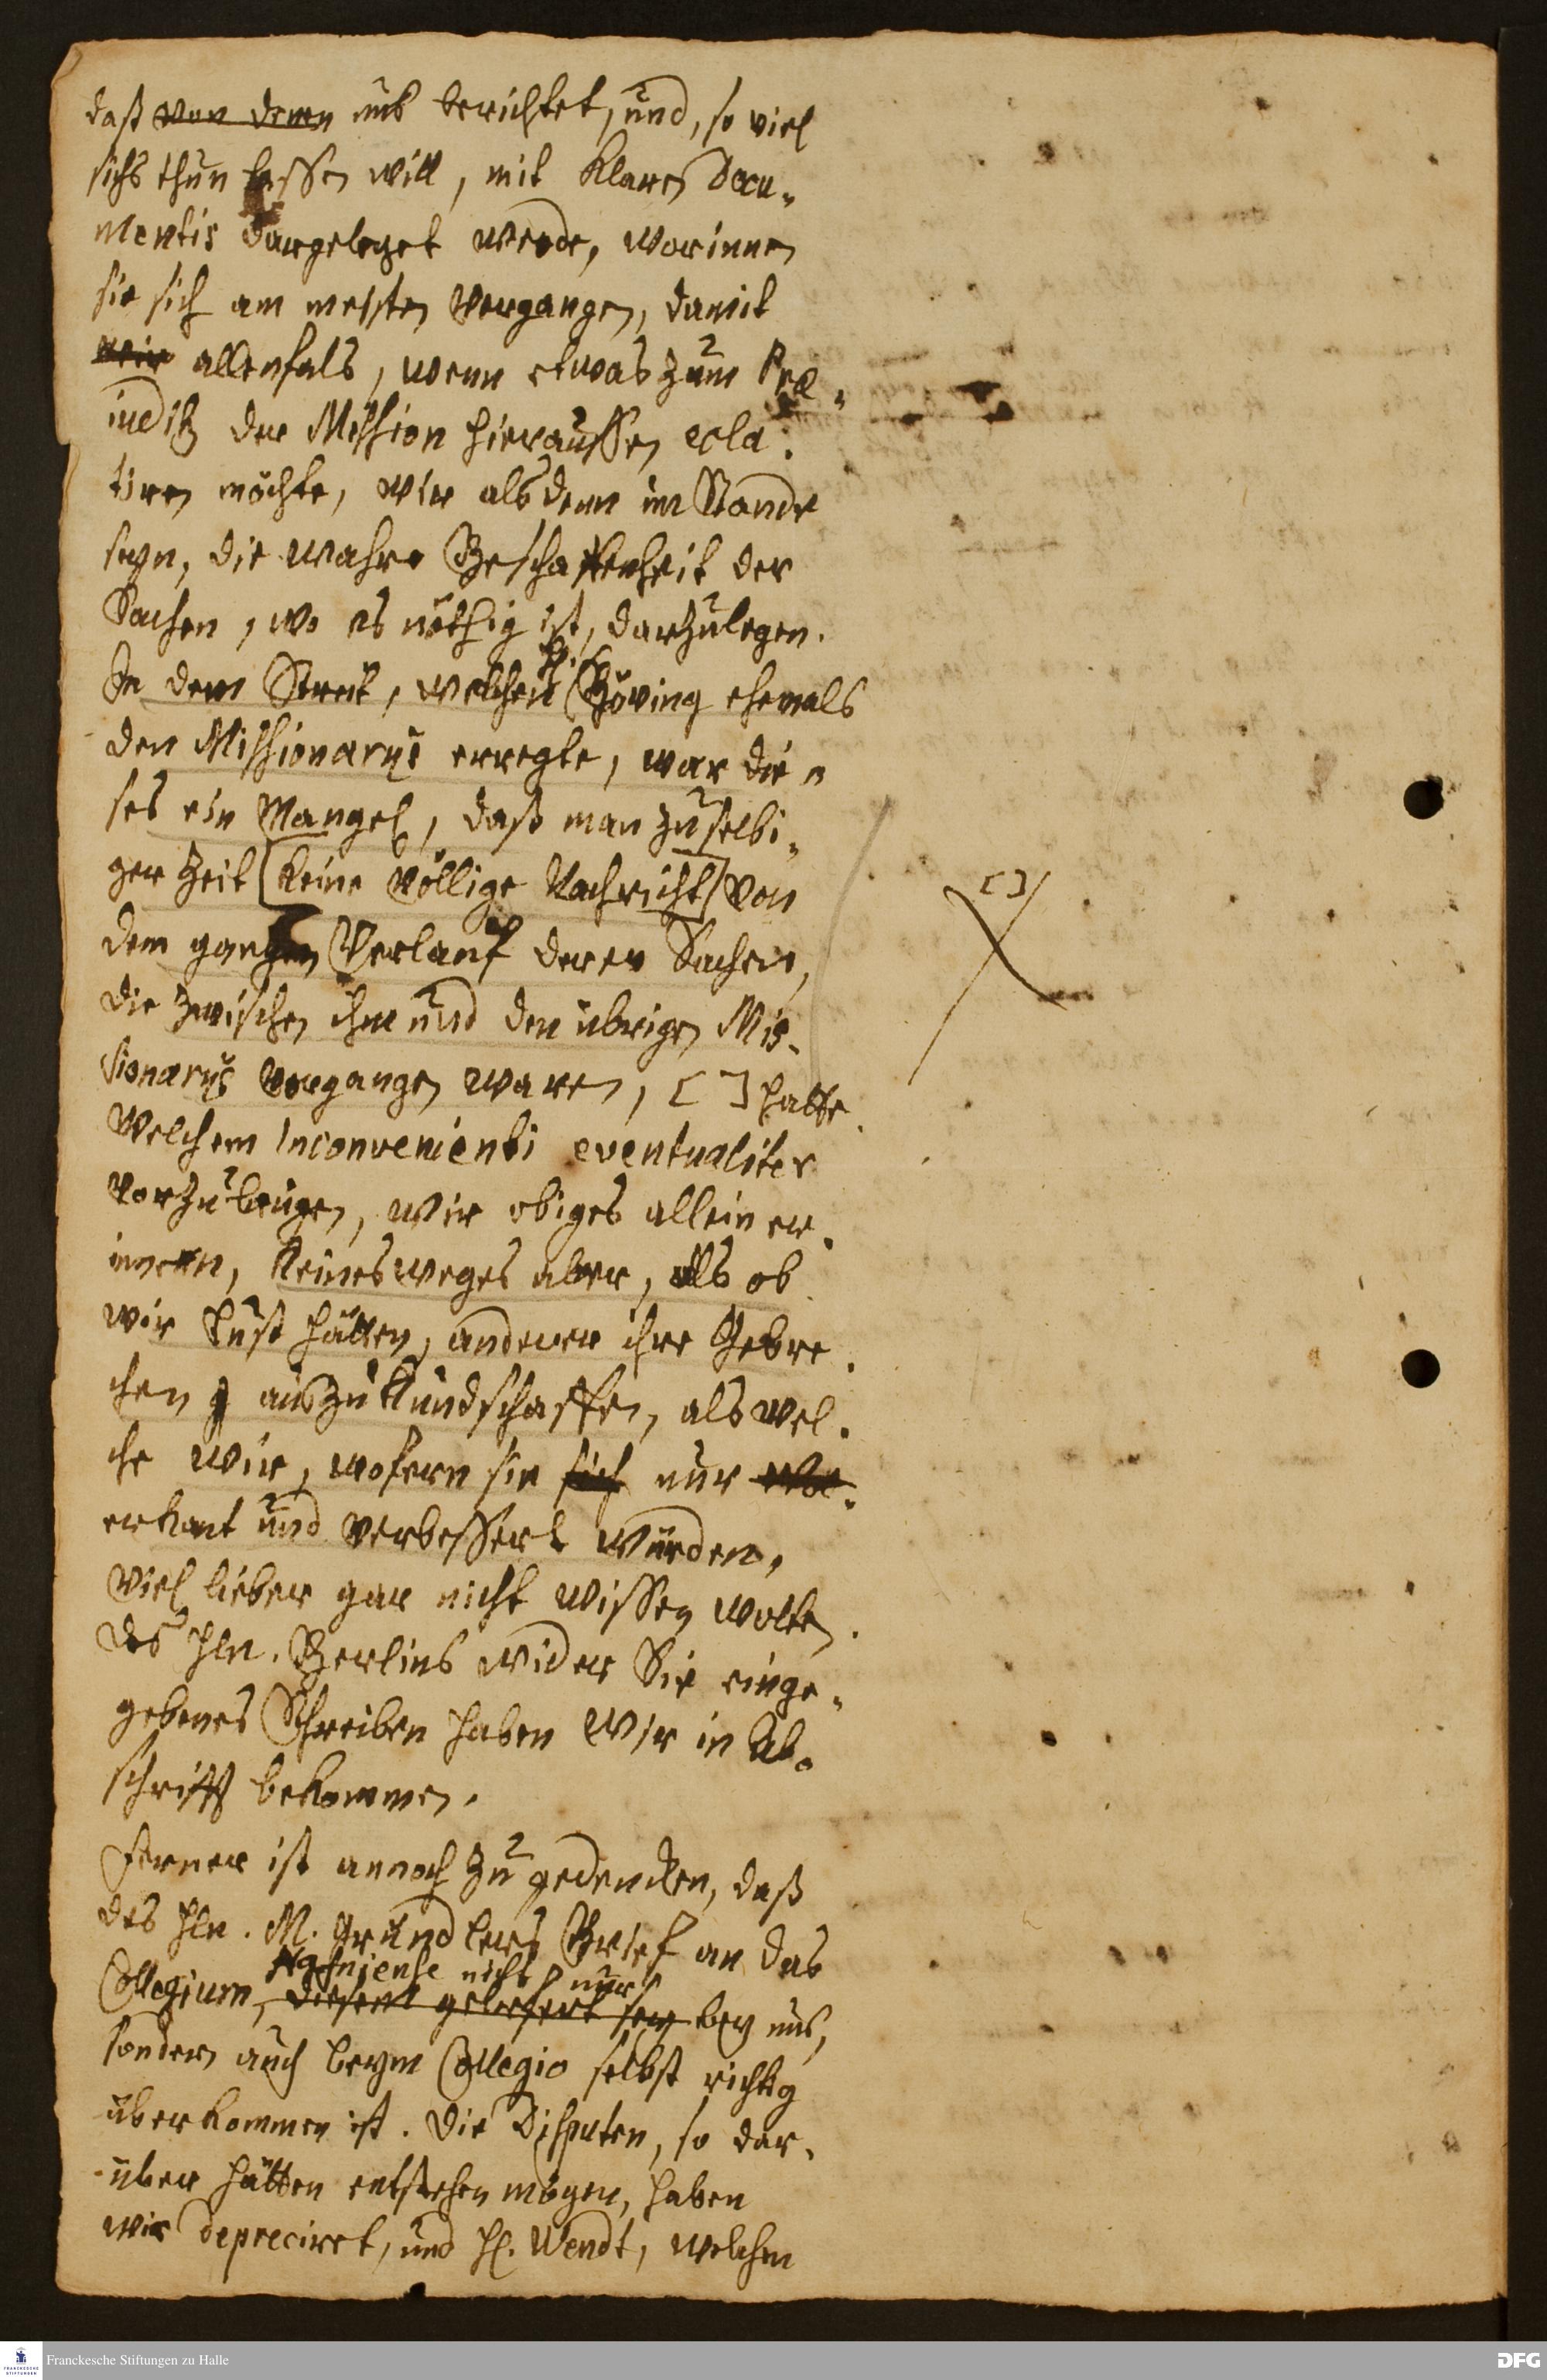 daß von denen uns berichtet, und, so viel
sichs thun lassen will, mit klaren Docu-
mentis dargeleget werde, worinnen
sie sich am meisten vergangen, damit
wir allenfals, wenn etwas zum Præ-
iuditz der Mission hieraussen ecla-
tiren möchte, wir alsdenn im Stande
seyn, die wahre Beschaffenheit der
Sachen, wo es nöthig ist, darzulegen.
In dem Streit, welchen H. Böving ehemals
den Missionariis erregte, war die-
ses ein Mangel, daß man zu selbi-
ger Zeit [keine völlige Nachricht] von
dem gantzen Verlauf derer Sachen,
die zwischen ihm und den übrigen Mis-
sionariis vorgangen waren, [ ] hatte.
Welchem Inconvenienti eventualiter
vorzubeugen, wir obiges allein er-
innern, keinesweges aber, als ob
wir Lust hätten, anderer ihre Gebre-
chen auszukundschaffen, als wel-
che wir, wofern sie sich nur
erkant und verbessert würden,
viel lieber gar nicht wissen wolten.
Des Hln. Berlins wider Sie einge-
gebenes Schreiben haben wir in Ab-
schrifft bekommen.
Ferner ist annoch zu gedencken, daß
des Hln. M. Gründlers Brief an das
Hafniense nicht nur
Collegium, diesem geliefert sey bey uns,
sondern auch beym Collegio selbst richtig
überkommen ist. Die Disputen, so dar-
über hätten entstehen mögen, haben
wir depreciret, und H. Wendt, welchem
[ ]
Franckesche Stiftungen zu Halle
FRANCKESCHE
STIFTUNGEN
DFG